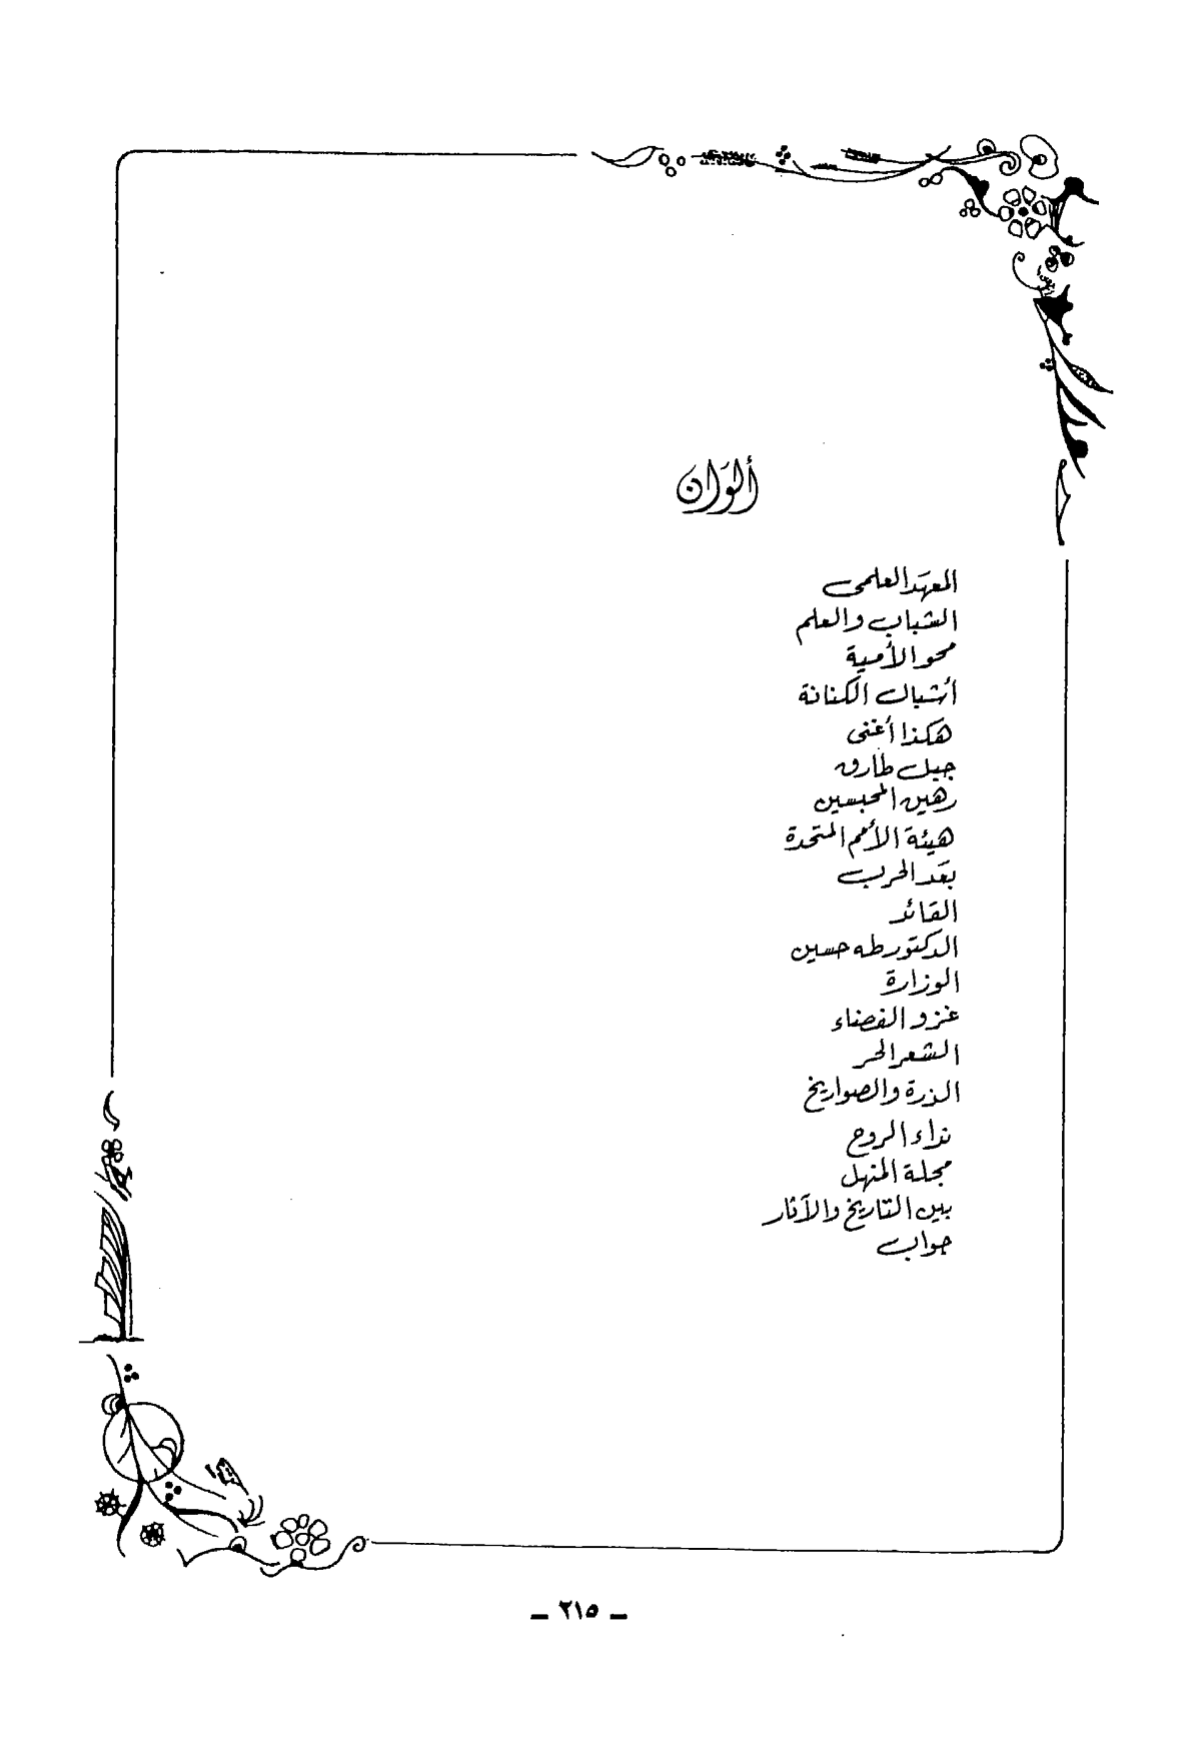 ألوان
المعهد العلمى
الشباب والعلم
محو الأمية
أشبال الكنانة
هكذا أغنى
جبل طارق
رهين المحبسين
هيئة الأمم المتحدة
بعد الحرب
القائد
الدكتور طه حسين
الوزارة
غزو الفضاء
الشعر الحر
الذرة والصواريخ
نداء الروح
مجلة المنهل
بين التاريخ والآثار
جواب
ـ ٢١٥ ـ